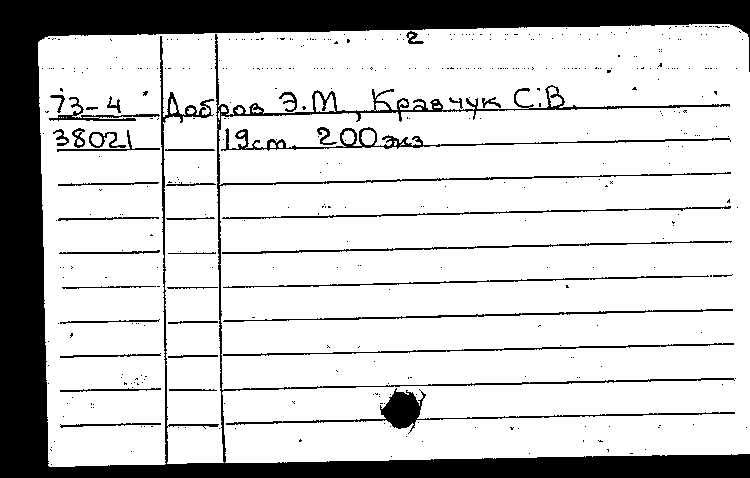 2
73-4 Добров Э.М., Кравчук С.В.
38021 19ст. 200экз